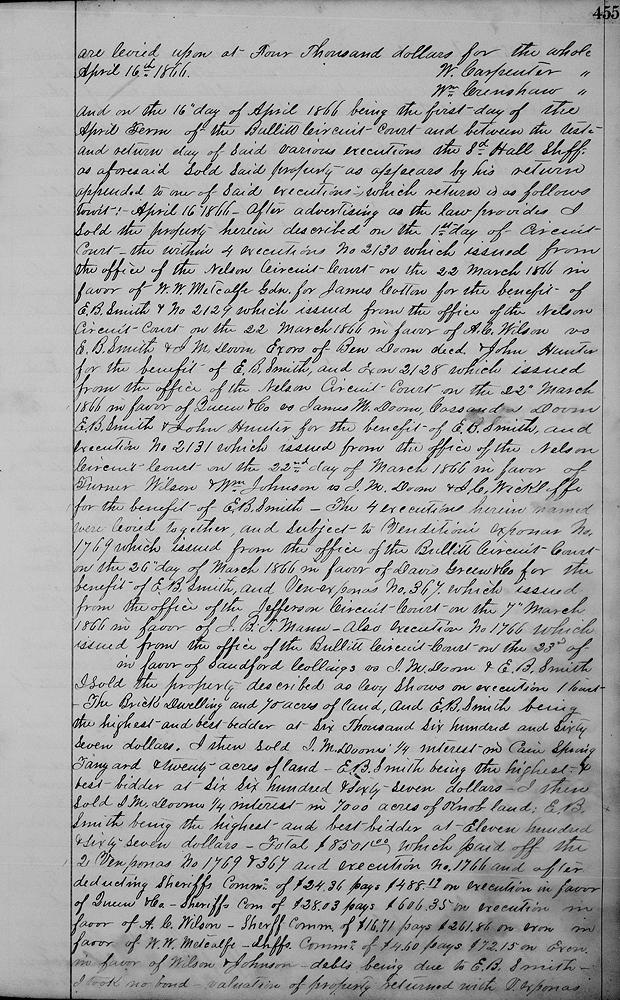 455
are levied upon at Four Thousand dollars for the whole
April 16th 1866. W. Carpenter "
Wm Crenshaw "
and on the 16" day of April 1866 being the first day of the
April Term of the Bullitt Circuit Court and between the test
and return day of said various executions the Sd Hall Shff.
as aforesaid Sold said property as appears by his return
appended to one of said executions which return is as follows
towit: April 16 1866 - After advertising as the law provides I
sold the property herein described on the 1st day of Circuit
Court - the within 4 executions No 2130 which issued from
the office of the Nelson Circuit Court on the 22 March 1866 in
favor of W. W. Metcalfe Gdn. for James Cotton for the benefit of
E. B. Smith & No 2129 which issued from the office of the Nelson
Circuit Court on the 22 March 1866 in favor of A. C. Wilson vs
E. B. Smith & J. M. Doom Exors of Ben Doom decd. & John Hunter
for the benefit of E. B. Smith, and Exon 2128 which issued
from the office of the Nelson Circuit Court on the 22" March
1866 in favor of Queen & Co vs James M. Doom, Cassandra Doom
E. B. Smith & John Hunter for the benefit of E. B. Smith, and
execution No 2131 which issued from the office of the Nelson
Circuit Court on the 22nd day of March 1866 in favor of
Turner Wilson & Wm Johnson vs J. M. Doom & J. C. Wickliffe
for the benefit of E. B. Smith - The 4 executions herein named
were levied together, and subject to Venditioni exponas No.
1769 which issued from the office of the Bullitt Circuit Court
on the 26" day of March 1866 in favor of Davis Green & Co for the
benefit of E. B. Smith, and Ven exponas No. 367. which issued
from the office of the Jefferson Circuit Court on the 7" March
1866 in favor of J. B. T. Mann - Also execution No 1766 which
issued from the office of the Bullitt Circuit Court on the 23d of
in favor of Sandford Collings vs J. M. Doom & E. B. Smith
I sold the property described as levy shows on execution 1
- The Brick Dwelling and 70 acres of land, and E. B. Smith being
the highest and best bidder at Six Thousand Six hundred and Sixty
Seven dollars. I then sold J. M. Dooms 1/4 interest in Cain Spring
Tanyard & twenty acres of land - E. B. Smith being the highest &
best bidder at Six Six hundred & Sixty Seven dollars - I then
sold J. M. Dooms 1/4 interest in 7000 acres of Knob land: E. B.
Smith being the highest and best bidder at Eleven hundred
& Sixty Seven dollars - Total $8501.00 which paid off the
2 Ven exponas No 1769 & 367 and execution no. 1766 and after
deducting Sheriffs Commn. of $24.36 pays $488.17 on execution in favor
of Queen & Co. - Sheriffs Com of $28.03 pays $606.35 on execution in
favor of A. C. Wilson - Sherff Comm. of $16.71 pays $261.86 on exon in
favor of W. W. Metcalfe - Shffs. Commn. of $4.60 pays $72.15 on Exon.
in favor of Wilson & Johnson - debts being due to E. B. Smith -
I took no bond - valuation of property returned with V. exponas